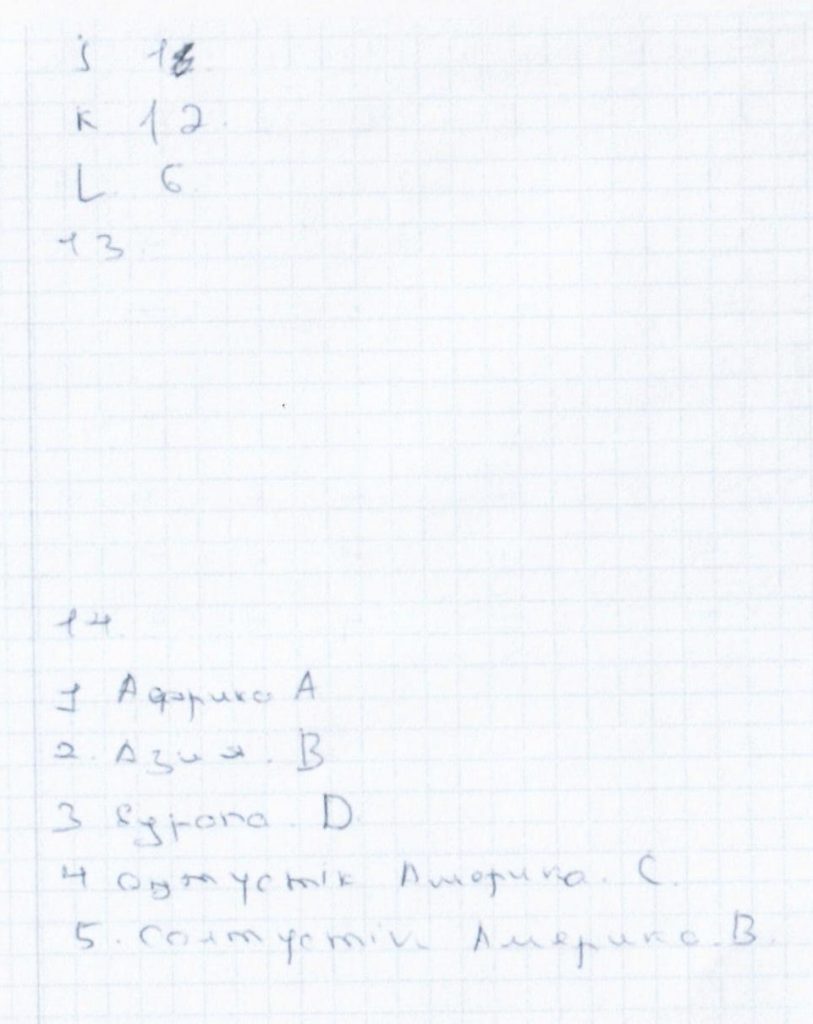 j
K 12.
L 6
13
14
1 Африка А
2. Азия. В
3 Еуропа. D
4 Оңтустік Америка. С.
5. Солтустік Америка. В.